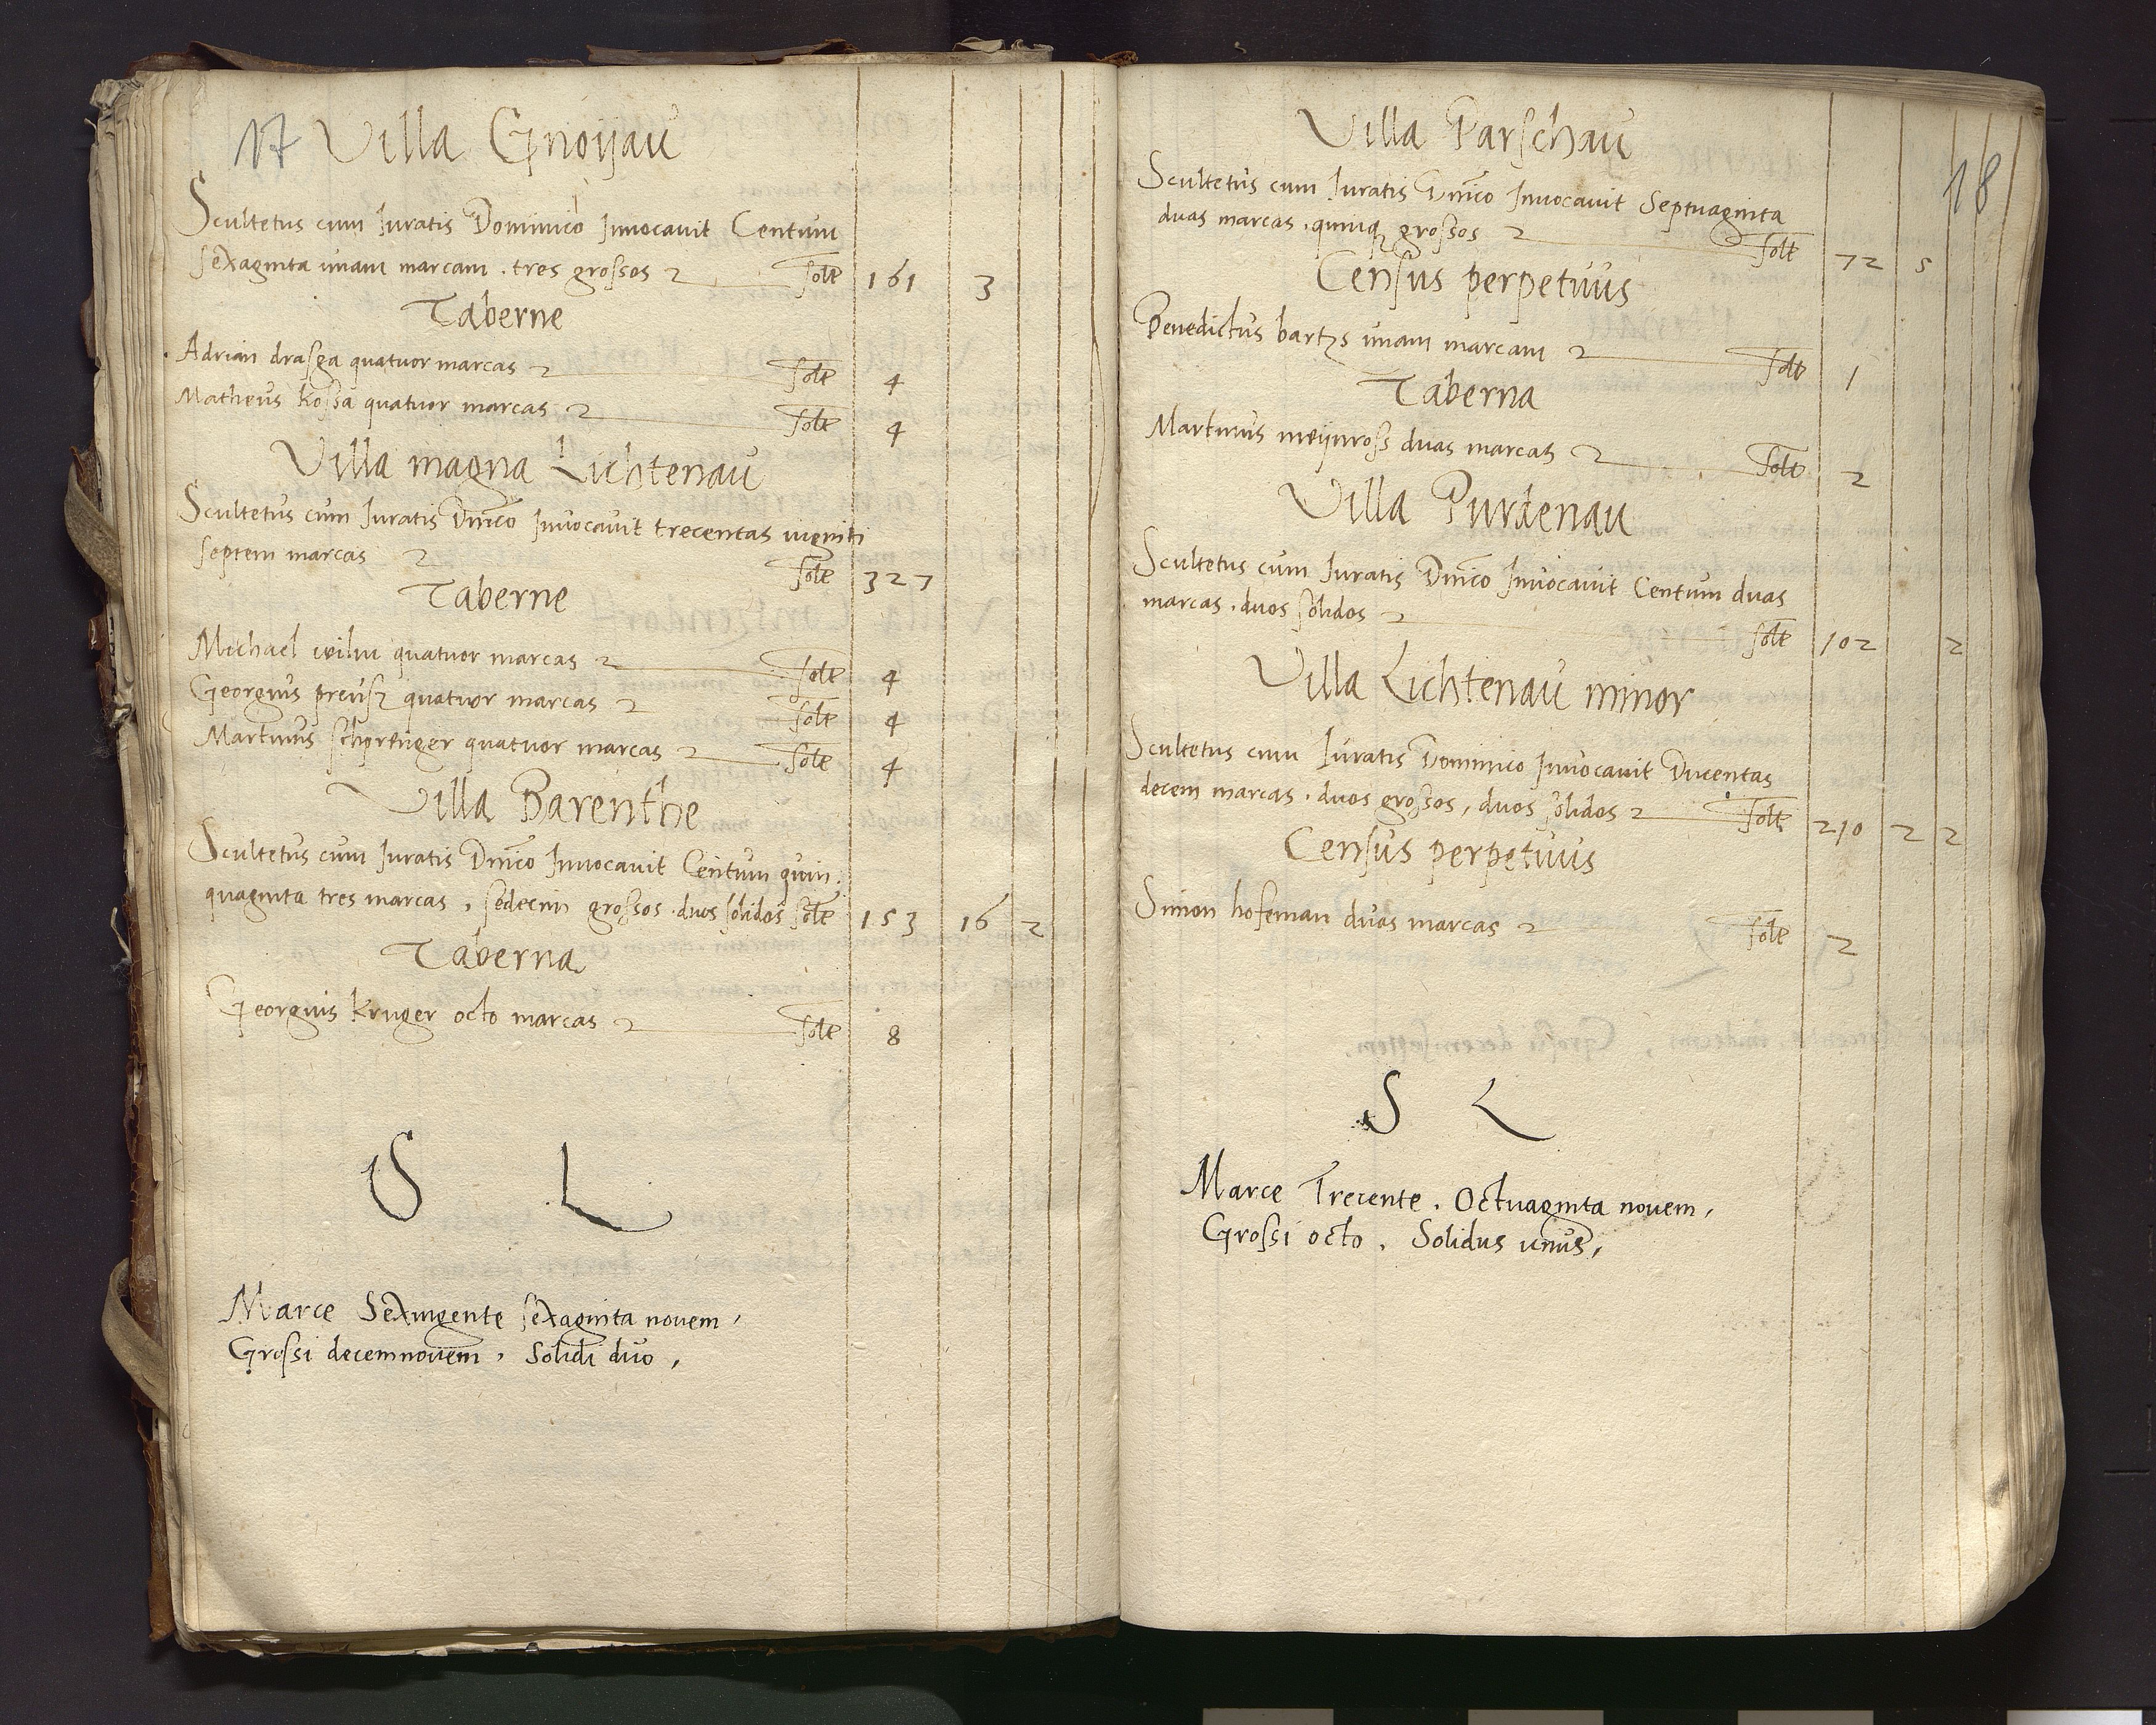 17 Villa Gnoÿau
Scultetus cum Iuratis Dominico Inuocauit Centum
sexaginta unam marcam. tres grossos solt 161 3
Taberne
Adrian drasga quatuor marcas solt 4
Matheus kossa quatuor marcas solt 4
Villa magna Lichtenau
Scultetus cum Iuratis Dnico Inuocauit trecentas uiginti
septem marcas solt 327
Taberne
Michael wilm quatuor marcas solt 4
Georgius preusz quatuor marcas solt 4
Martinus schprenger quatuor marcas solt 4
Villa Barenthe
Scultetus cum Iuratis Dnico Inuocauit Centum quin:
quaginta tres marcas, sedecim grossos. duos solidos solt 153 16 2
Taberna
Georgius kruger octo marcas solt 8
S L
Marce Sexingente sexaginta nouem,
Grossi decemnouem, Solidi duo,
18
Villa Parschau
Scultetus cum Iuratis Dnico Inuocauit Septuaginta
duas marcas. quinqꝫ grossos solt 72 5
Census perpetuus
Benedictus bartzs unam marcam solt 1
Taberna
Martinus meÿnross duas marcas solt 2
Villa Purdenau
Scultetus cum Iuratis Dnico Inuocauit Centum duas
marcas. duos solidos solt 102 2
Villa Lichtenau minor
Scultetus cum Iuratis Dominico Inuocauit Ducentas
decem marcas. duos grossos, duos solidos solt 210 2 2
Census perpetuus
Simon hofeman duas marcas solt 2
S L
Marce Trecente. Octuaginta nouem,
Grossi octo. Solidus unus,